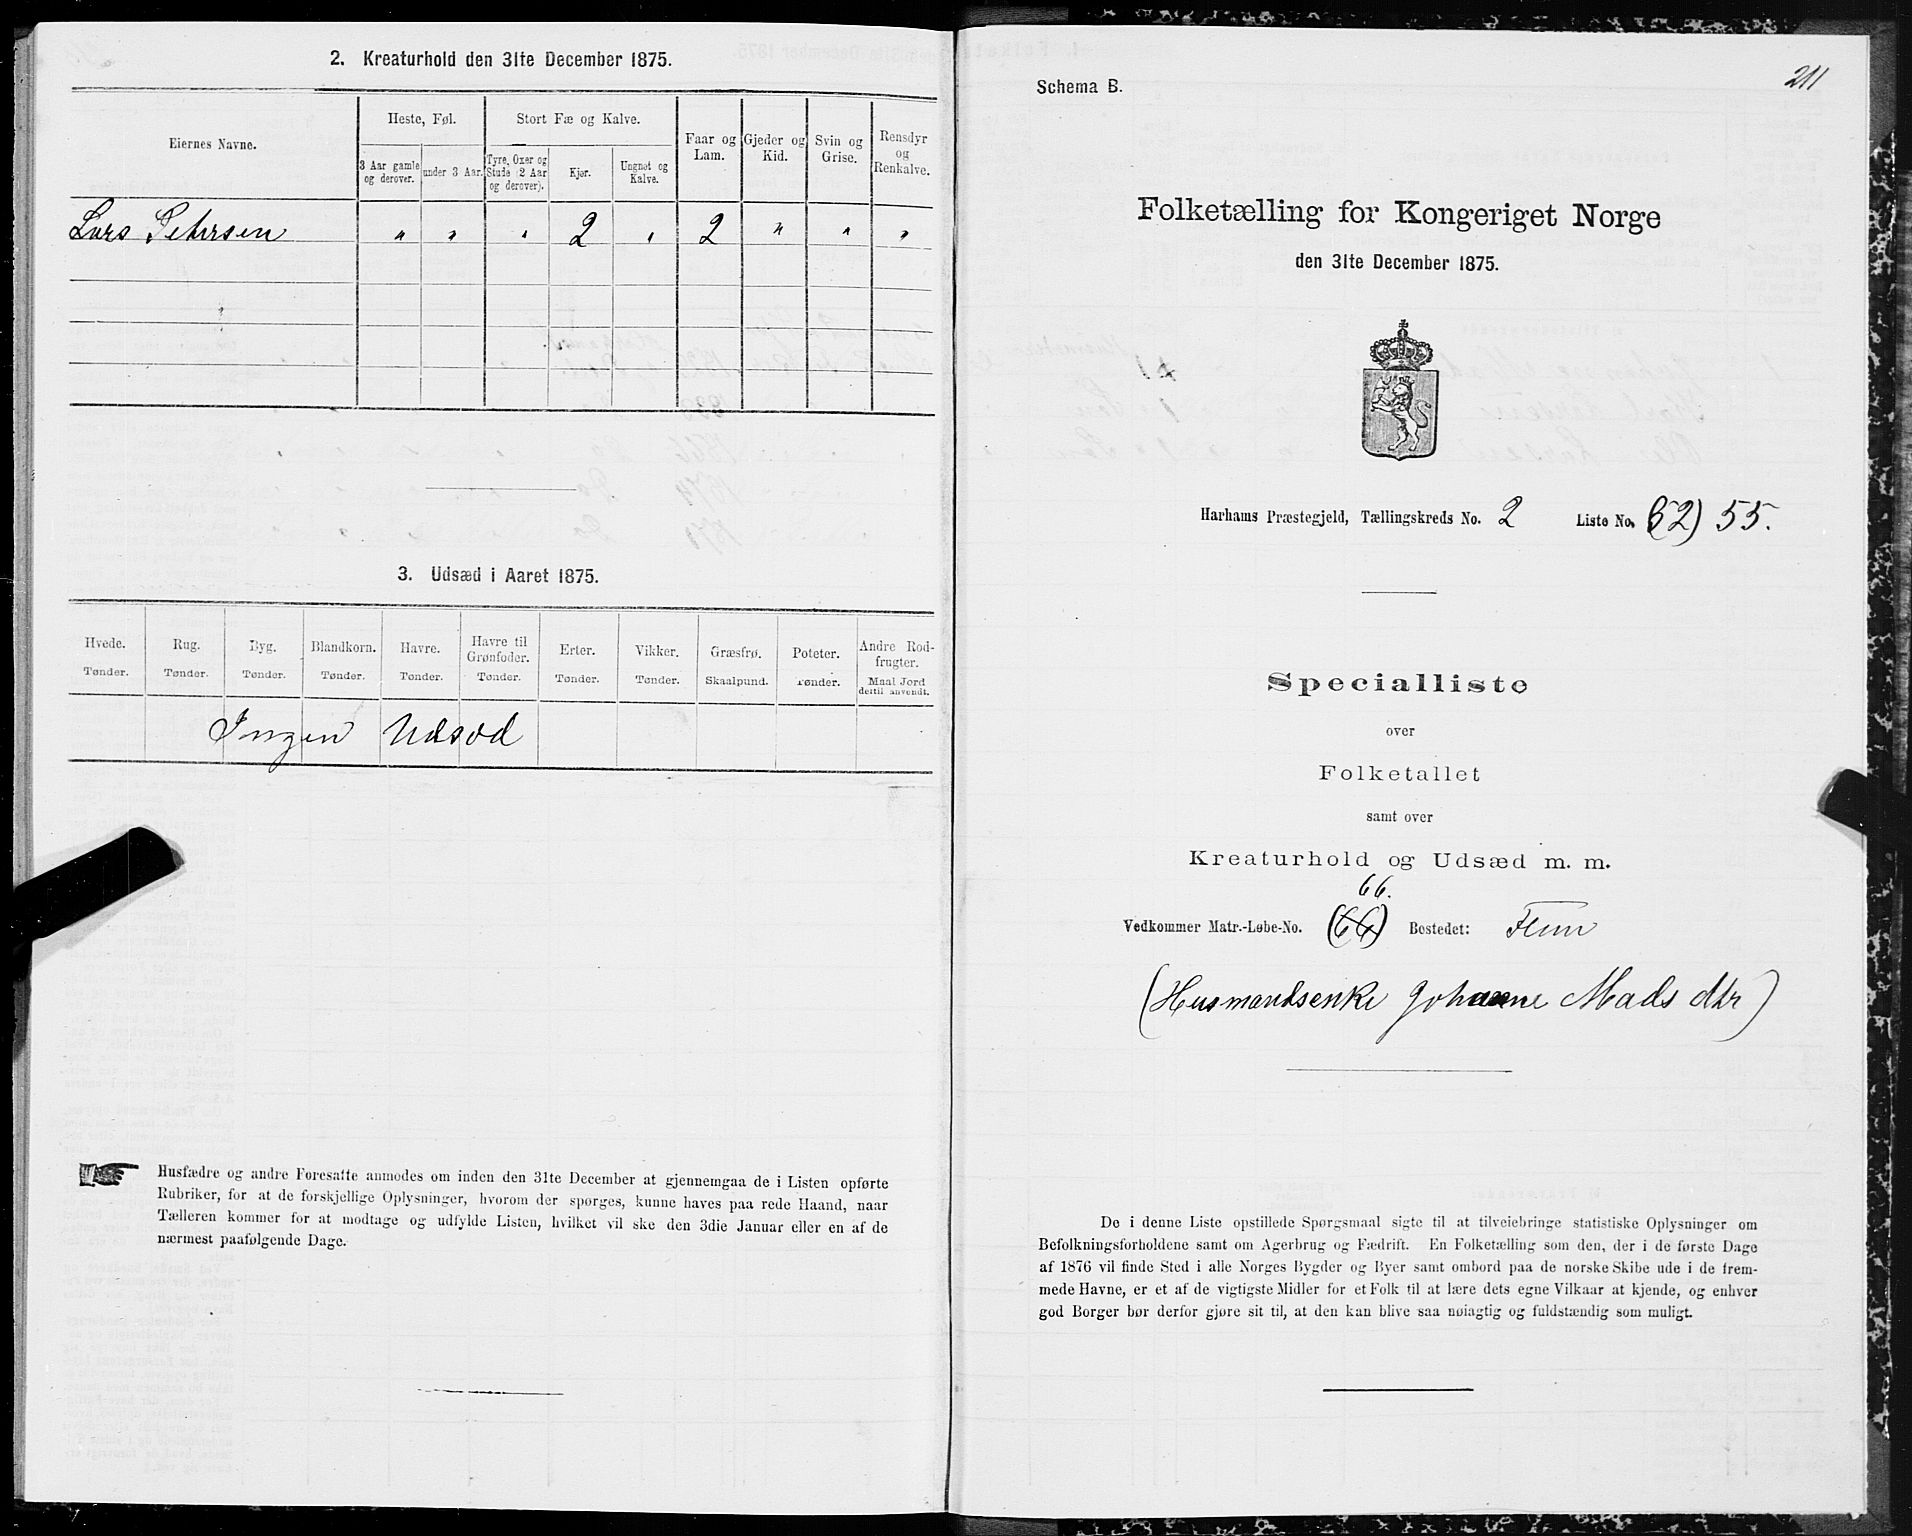 2. Kreaturhold den 31te December 1875.
Eiernes Navne.
Heste, Føl.
Stort Fæ og Kalve.
Faar og Lam.
Gjeder og Kid.
Svin og Grise.
Rensdyr og Renkalve.
3 Aar gamle og derover.
under 3 Aar.
Tyre, Oxer og Stude (2 Aar og derover).
Kjør.
Ungnøt og Kalve.
Lars Petersen " " " 2 " 2 " " "
3. Udsæd i Aaret 1875.
Hvede. Rug. Byg. Blandkorn. Havre. Havre til Grønfoder. Erter. Vikker. Græsfrø. Poteter. Andre Rodfrugter.
Tønder. Tønder. Tønder. Tønder. Tønder. Tønder. Tønder. Tønder. Skaalpund. Tønder. Maal Jord dertil anvendt.
Ingen Udsæd
Husfædre og andre Foresatte anmodes om inden den 31te December at gjennemgaa de i Listen opførte
Rubriker, for at de forskjellige Oplysninger, hvorom der spørges, kunne haves paa rede Haand, naar
Tælleren kommer for at modtage og udfylde Listen, hvilket vil ske den 3die Januar eller en af de
nærmest paafølgende Dage.
211
Schema B.
Folketælling for Kongeriget Norge
den 31te December 1875.
Harhams Præstegjeld, Tællingskreds No. 2 Liste No. (62) 55.
Specialliste
over
Folketallet
samt over
Kreaturhold og Udsæd m. m.
66.
Vedkommer Matr.-Løbe-No. (66) Bostedet: Flem
(Husmandsenke Johanne Mads dtr)
De i denne Liste opstillede Spørgsmaal sigte til at tilveiebringe statistiske Oplysninger om
Befolkningsforholdene samt om Agerbrug og Fædrift. En Folketælling som den, der i de første Dage
af 1876 vil finde Sted i alle Norges Bygder og Byer samt ombord paa de norske Skibe ude i de frem-
mede Havne, er et af de vigtigste Midler for et Folk til at lære dets egne Vilkaar at kjende, og enhver
god Borger bør derfor gjøre sit til, at den kan blive saa nøiagtig og fuldstændig som muligt.